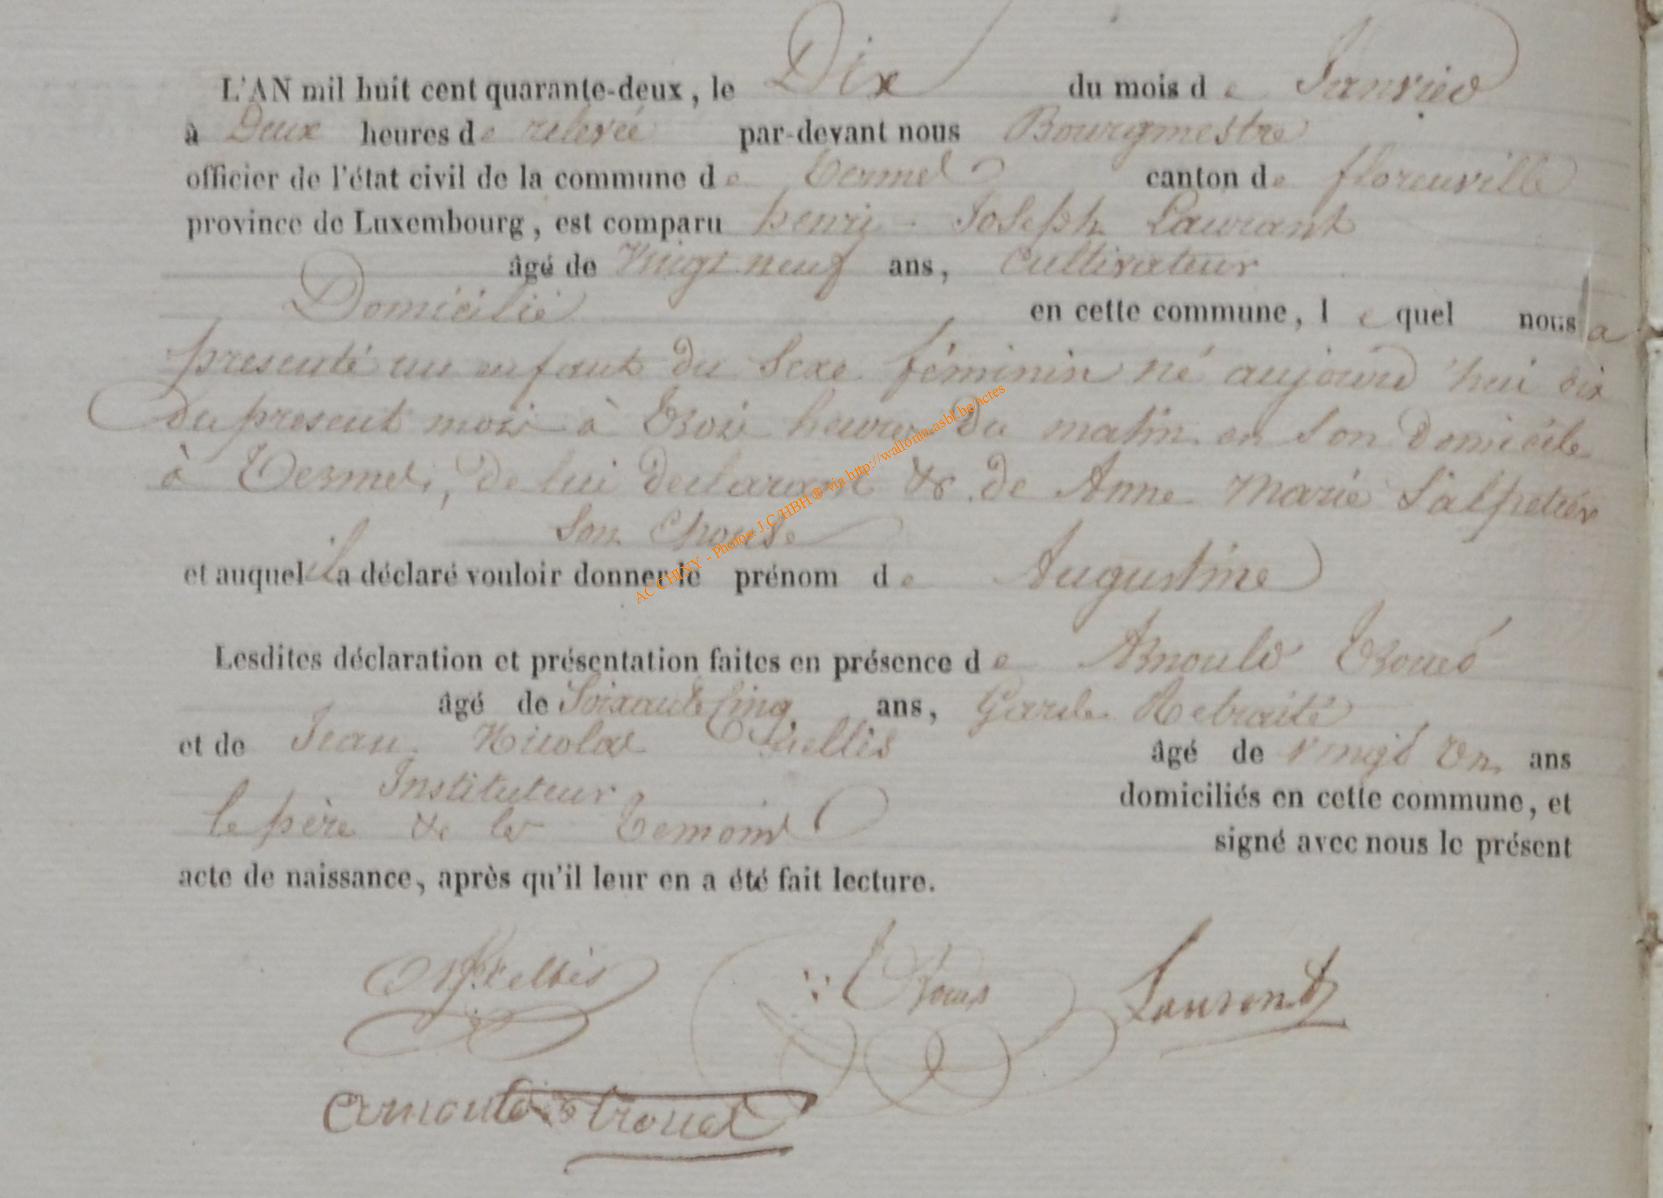 L'AN mil huit cent quarante-deux, le Dix du mois de Janvier
à Deux heures de relevée par-devant nous Bourgmestre
officier de l'état civil de la commune de Termes canton de florenville
province de Luxembourg, est comparu henry - Joseph Laurant
âgé de Vingt neuf ans, Cultivateur
Domicilié en cette commune, lequel nous a
presenté un enfant du Sexe féminin né aujourd'hui dix
du present mois à Trois heures du matin en Son Domicile
à Termes, de lui declarant & de Anne Marie Salpeteér
Son Epouse
et auquel il a déclaré vouloir donner le prénom de Augustine
Lesdites déclaration et présentation faites en présence de Arnould
âgé de Soixante Cinq ans, Garde Retraité
et de Jean Nicolas âgé de vingt un ans
Instituteur domiciliés en cette commune, et
le père & les Temoins signé avec nous le présent
acte de naissance, après qu'il leur en a été fait lecture.
Laurent
AC CHINY - Photos J.C/HBH® via http://wallonia.asbl.be/actes